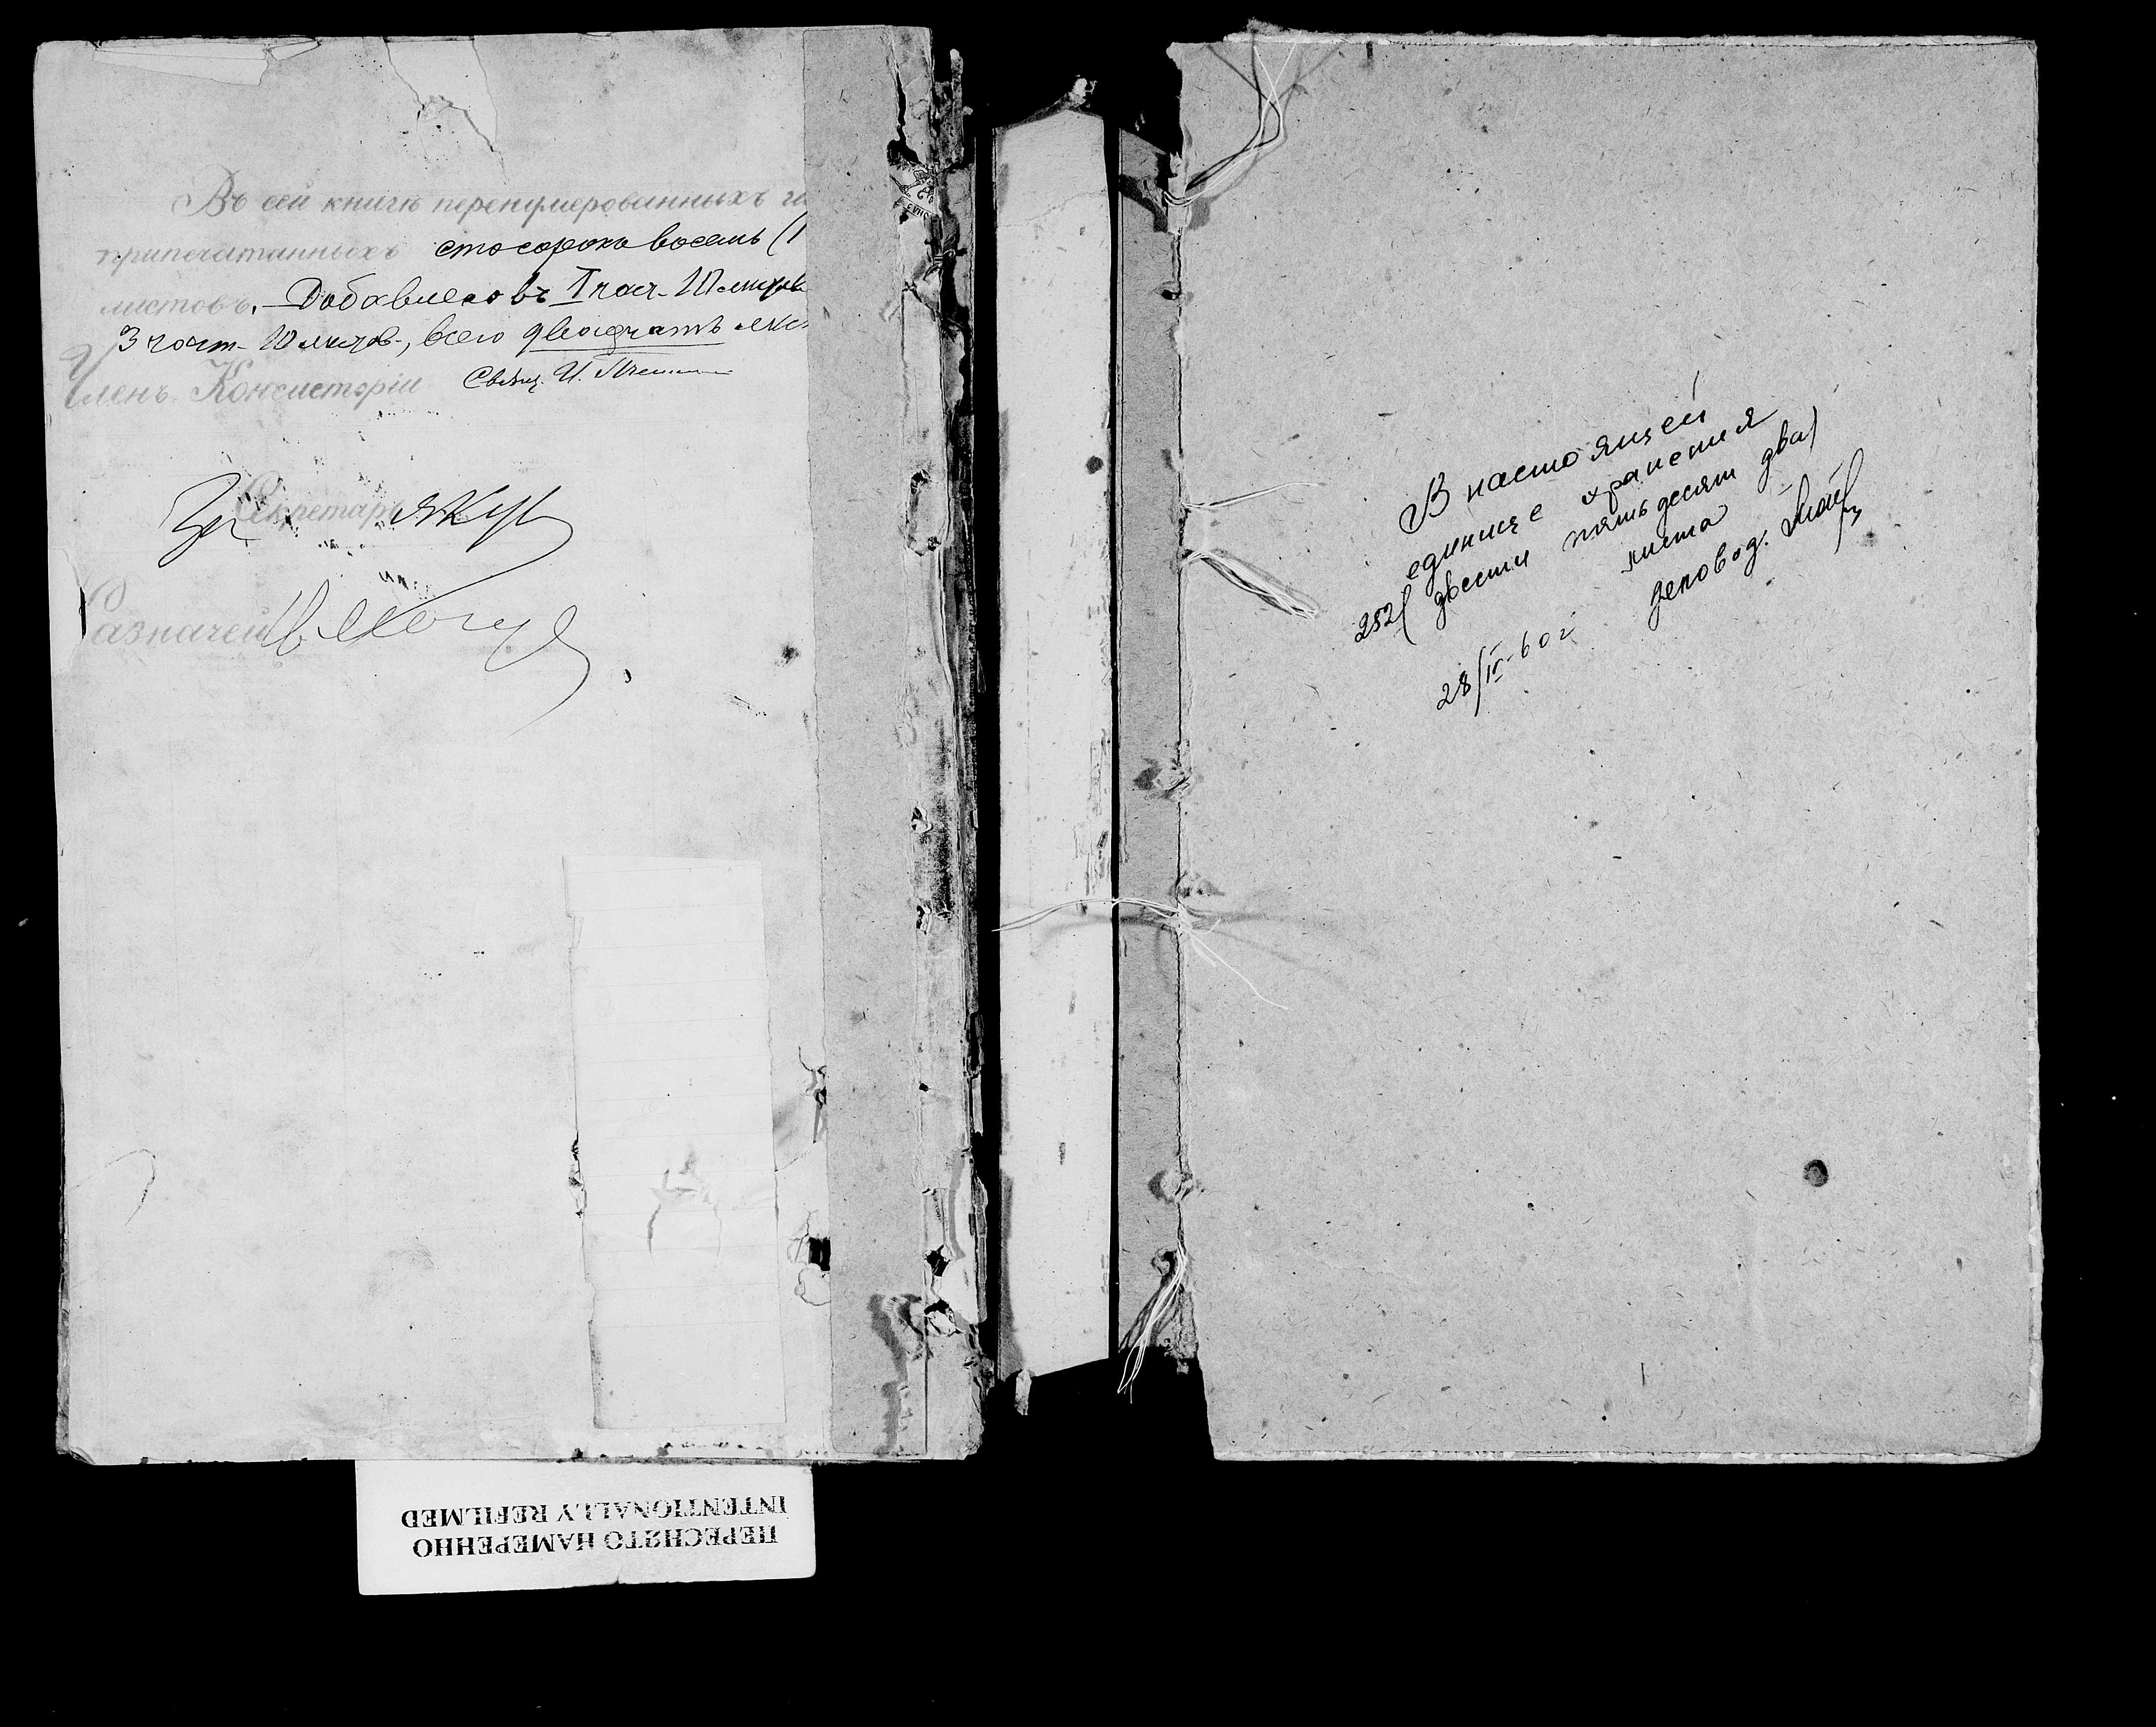 Въ сей книгѣ перенумерованныхъ
припечатанныхъ сто сорокъ восемь (1
листовъ. Добавлено въ I част. 10 листовъ
3 част. 10 листов., всего двадцать
Членъ Консисторіи Свящ. И.
Секретарь
Казначей
В настоящей
единице хранения
252 (двести пятьдесят два)
листа
28/IV-60 г деловод.
ПЕРЕСНЯТО НАМЕРЕННО
INTENTIONALLY REFILMED